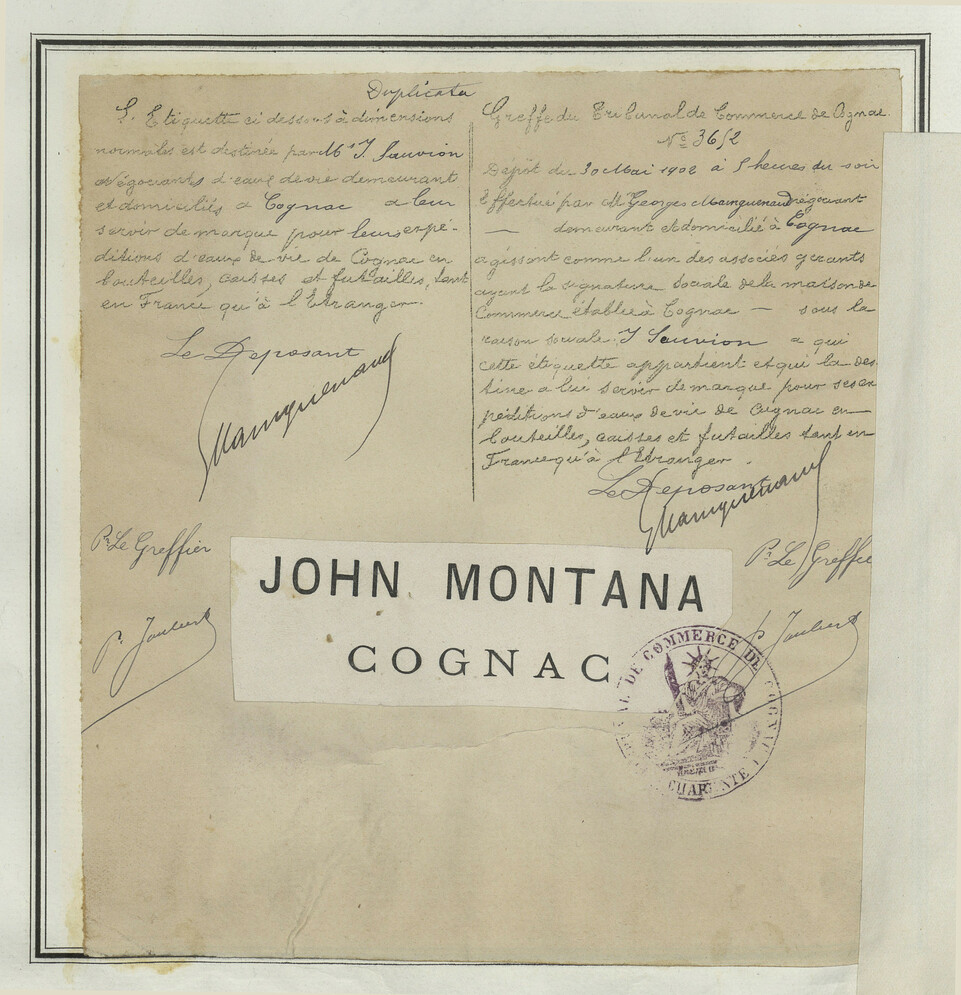 Duplicata
L'Etiquette ci dessous à dimensions
normales est destinée par Mrs J. Sauvion
Négociants d'eaux de vie demeurant
et domiciliés à Cognac à leur
servir de marque pour leurs expé-
ditions d'eaux de vie de Cognac en
bouteilles, caisses et futailles, tant
en France qu'à l'Etranger.
Le Deposant
Mainguenaud
Pr Le Greffier
P. Joubert
Greffe du Tribunal de Commerce de Cognac
No 3652
Dépôt du 30 Mai 1902 à 5 heures du soir
Effectué par M Georges Mainguenaud négociant
— demeurant et domicilié à Cognac
agissant comme l'un des associés gérants
ayant la signature sociale de la maison de
Commerce établie à Cognac — sous la
raison sociale J Sauvion à qui
cette étiquette appartient et qui la des-
tine à lui servir de marque pour ses ex
péditions d'eaux de vie de Cognac en
bouteilles, caisses et futailles tant en
France qu'à l'Etranger.
Le Deposant
Mainguenaud
Pr Le Greffie
P. Joubert
JOHN MONTANA
COGNAC
DE COMMERCE DE COGNAC
CHARENTE